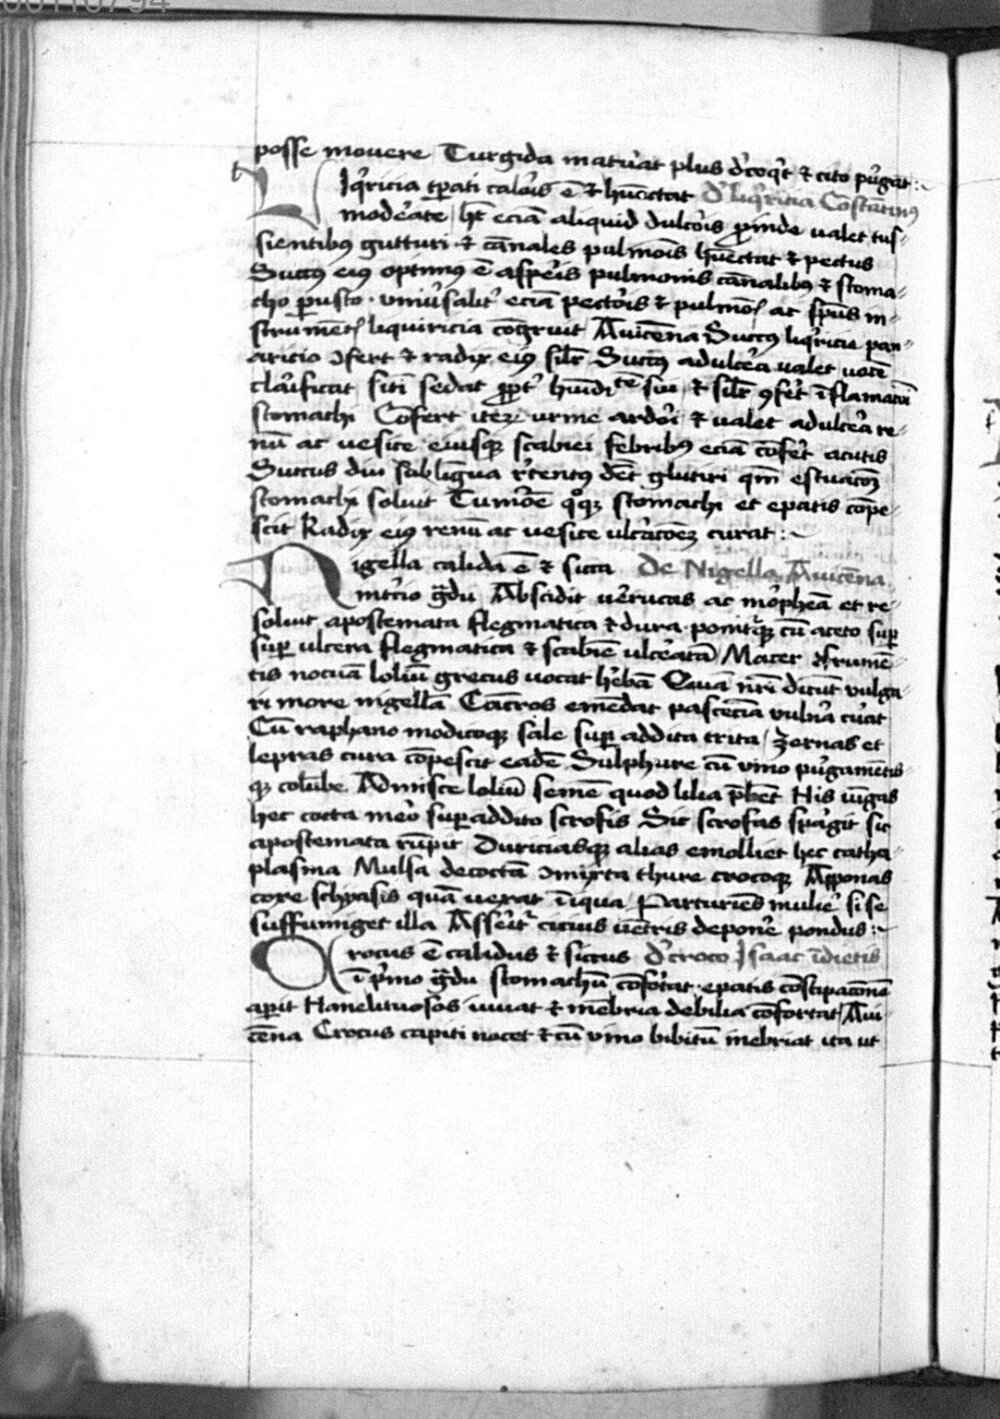 posse movere Turgida maturat plus dcoqt & cito purgat
Liqricia tpati caloris ē & humectat d' liqricia Costātinus
moderate ht eciā aliquid dulcoris proinde valet tus-
sientibus gutturi & cānales pulmōis humectat & pectus
Succus eius optimus ē aspis pulmonis cānalibus & stoma-
cho pusto. universalit eciā pectoris & pulmō ac spūs in-
strumēt liquiricia cōgruit Auicēna Succus liqricie pan-
aricio ɔfert & radix eius silr Succus ad ulcera valet vocē
clarificat sitī sedat ppt humidtē sui & silr ɔfert īflamacōi
stomachi Cōfert itez urine ardori & valet ad ulcera re-
nū ac uesice eiusqz scabiei febribus eciā cōfert acutis
Succus diu sub lingua retentus det glutiri qm̄ estuacōz
stomachi soluit Tumorē qoqz stomachi et epatis cōpe-
scit Radix eius renū ac uesice ulceracōez curat
Nigella calida ē & sicca De Nigella Auicēna
in tercio gdu Abscidit uerrucas ac morpheā et re-
soluit apostemata flegmatica & dura. ponitqz cū aceto sup
sup ulcera flegmatica & scabiē ulceratā Macer frumē-
tis nocuā loliū grecus uocat herbā Quā nri dicūt vulga-
ri more nigellā Cācros emēdat pascēciā vulna curat
Cū raphano modicoqz sale sup addita trita zernas et
lepras cura cōpescit eadē Sulphure cū vino purgamētis-
qz colūbe Admisce loliū semē quod lilia pbēt His iūgas
hec cocta mero sup addito scrofis Sic scrofas spargit sic
apostemata rūpit Duriciasqz alias emolliet hec catha-
plasma Mulsa decoctā ɔmixta thure crocoqz Apponas
coxe schyasis quā uexat iniqua Parturiens mulier si se
suffumiget illa Asserit cicius uētris deponē pondus
Crocus ē calidus & siccus d' croco Isaac ī dietis
ī pmo gdu stomachū cōfortat. epatis cōstipacōnē
aperit Hanelituosos iuuat & mēbria debilia cōfortat Aui-
cēna Crocus capiti nocet & cū vino bibitū inebriat ita ut